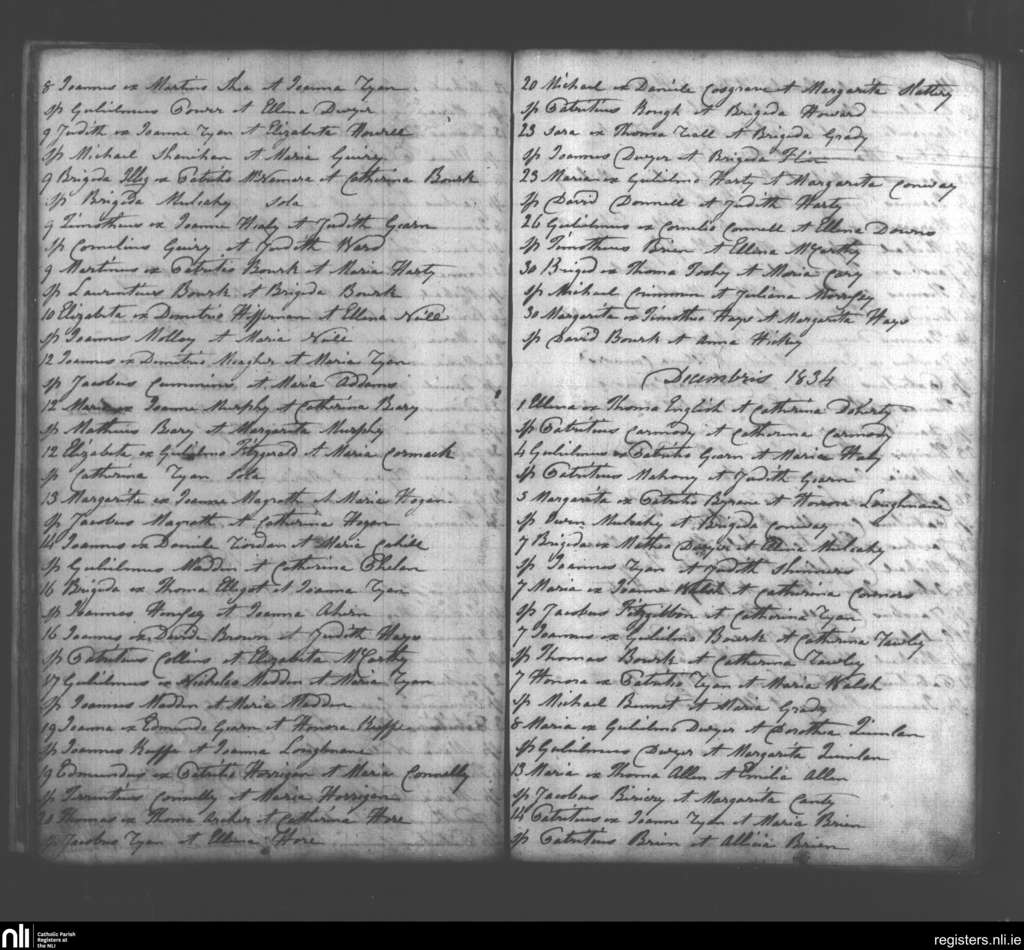 8 Joannes ex Martino Shea et Joanna Ryan
sp Gulielmus Power et Ellena Dwyer
9 Judith ex Joanne Ryan et Elizabeta Howell
sp Michael Shanihan et Maria Guiry
9 Brigida Illeg ex Patritio McNamara et Catherina Bourk
sp Brigida Mulcahy sola
9 Timotheus ex Joanne Healy et Judith Gearn
sp Cornelius Guiry et Judith Ward
9 Martinus ex Patritio Bourk et Maria Harty
sp Laurentius Bourk et Brigida Bourk
10 Elizabeta ex Demetrio Heffernan et Ellena Neill
sp Joannes Molloy et Maria Neill
12 Joannes ex Demetrio Meagher et Maria Ryan
sp Jacobus Cummins et Maria Addams
12 Maria ex Joanne Murphy et Catherina Bary
sp Matheus Bary et Margarita Murphy
12 Elizabeta ex Gulielmo Fitzgerald et Maria Cormack
sp Catherina Ryan Sola
13 Margarita ex Joanne Magrath et Maria Hogan
sp Jacobus Magrath et Catherina Hogan
14 Joannes ex Daniele Riordan et Maria Cahill
sp Gulielmus Maddin et Catherina Phelan
16 Brigida ex Thoma Elligot et Joanna Ryan
sp Joannes et Joanna Ahern
16 Joannes ex David Brown et Judith Hayes
sp Patritius Collins et Elizabeta McCarthy
17 Gulielmus ex Nicholao Madden et Maria Ryan
sp Joannes Madden et Maria Madden
19 Joanna ex Edmundo Gearn et Honora
sp Joannes et Joanna Longhnane
19 Edmundus ex Patritio Horrigan et Maria Connelly
sp Terrentius Connelly et Maria Horrigan
20 Thomas ex Thoma Archer et Catherina Hore
sp Jacobus Ryan et Ellena Hore
20 Michael ex Daniele Cosgrave et Margarita Slattery
sp Patritius Bough et Brigida Howard
23 Sara ex Thoma et Brigida Grady
sp Joannes Dwyer et Brigida
23 Maria ex Gulielmo Harty et Margarita Conway
sp David Donnell et Judith Harty
26 Gulielmus ex Cornelio Connell et Ellena Downs
sp Timotheus Brien et Ellena McCarthy
30 Brigid ex Thoma et Maria Cary
sp Michael Crimmin et Juliana
30 Margarita ex Timotheo Hays et Margarita Hays
sp David Bourk et Anna Hickey
Decembris 1834
1 Ellena ex Thoma English et Catherina Doherty
sp Patritius Carmody et Catherina Carmody
4 Gulielmus ex Patritio Gearn et Maria Healy
sp Patritius Mahony et Judith Gearn
5 Margareta ex Patritio Byrane et Honora Loughnane
sp Owen Mulcahy et Brigida Conway
7 Brigida ex Matheo Dwyer et Ellena Mulcahy
sp Joannes Ryan et Judith Shinners
7 Maria ex Joanne Walsh et Catherina Connors
sp Jacobus Fitzgibbon et Catherina Ryan
7 Joannes ex Gulielmo Bourk et Catherina Tawley
sp Thomas Bourk et Catherina Tawley
7 Honora ex Patritio Ryan et Maria Walsh
sp Michael Bennet et Maria Grady
8 Maria ex Gulielmo Dwyer et Dorothea Quinlan
sp Gulielmus Dwyer et Margarita Quinlan
13 Maria ex Thoma Allen et Emilia Allen
sp Jacobus et Margarita Canty
14 Patritius ex Joanne Ryan et Maria Brien
sp Patritius Brien et Allicia Brien
nli Catholic Parish
Registers at
the NLI
registers.nli.ie